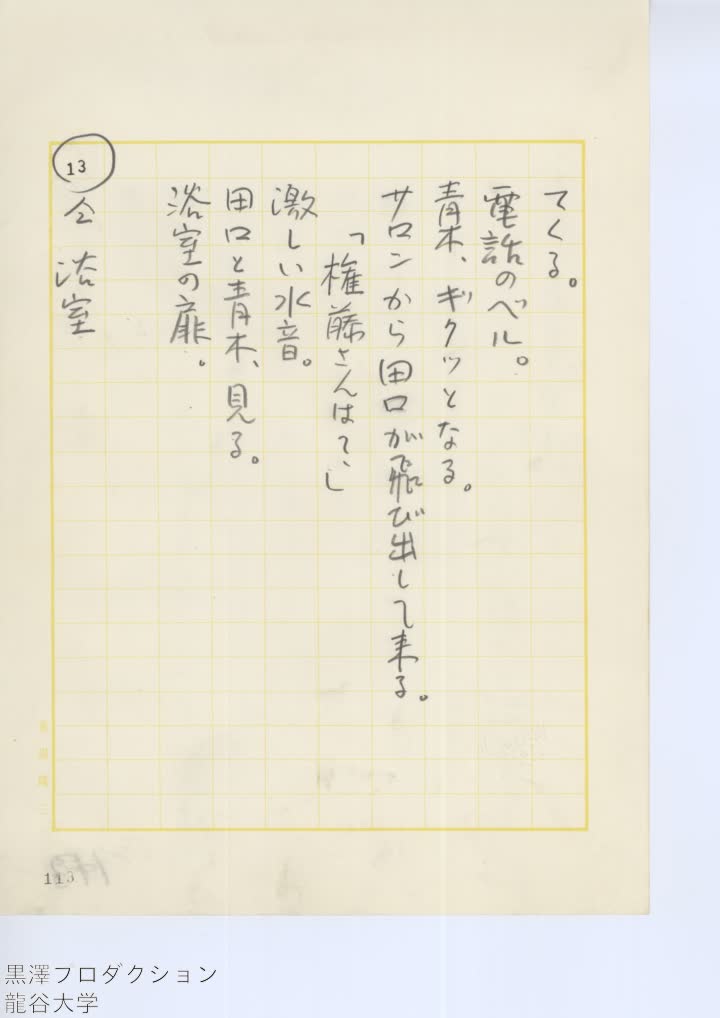 てくる。
電話のベル。
青木、ギクッとなる。
サロンから田口が飛び出して来る。
「権藤さんは?」
激しい水音。
田口と青木、見る。
浴室の扉。
13
仝 浴室
113
黒澤プロダクション
龍谷大学